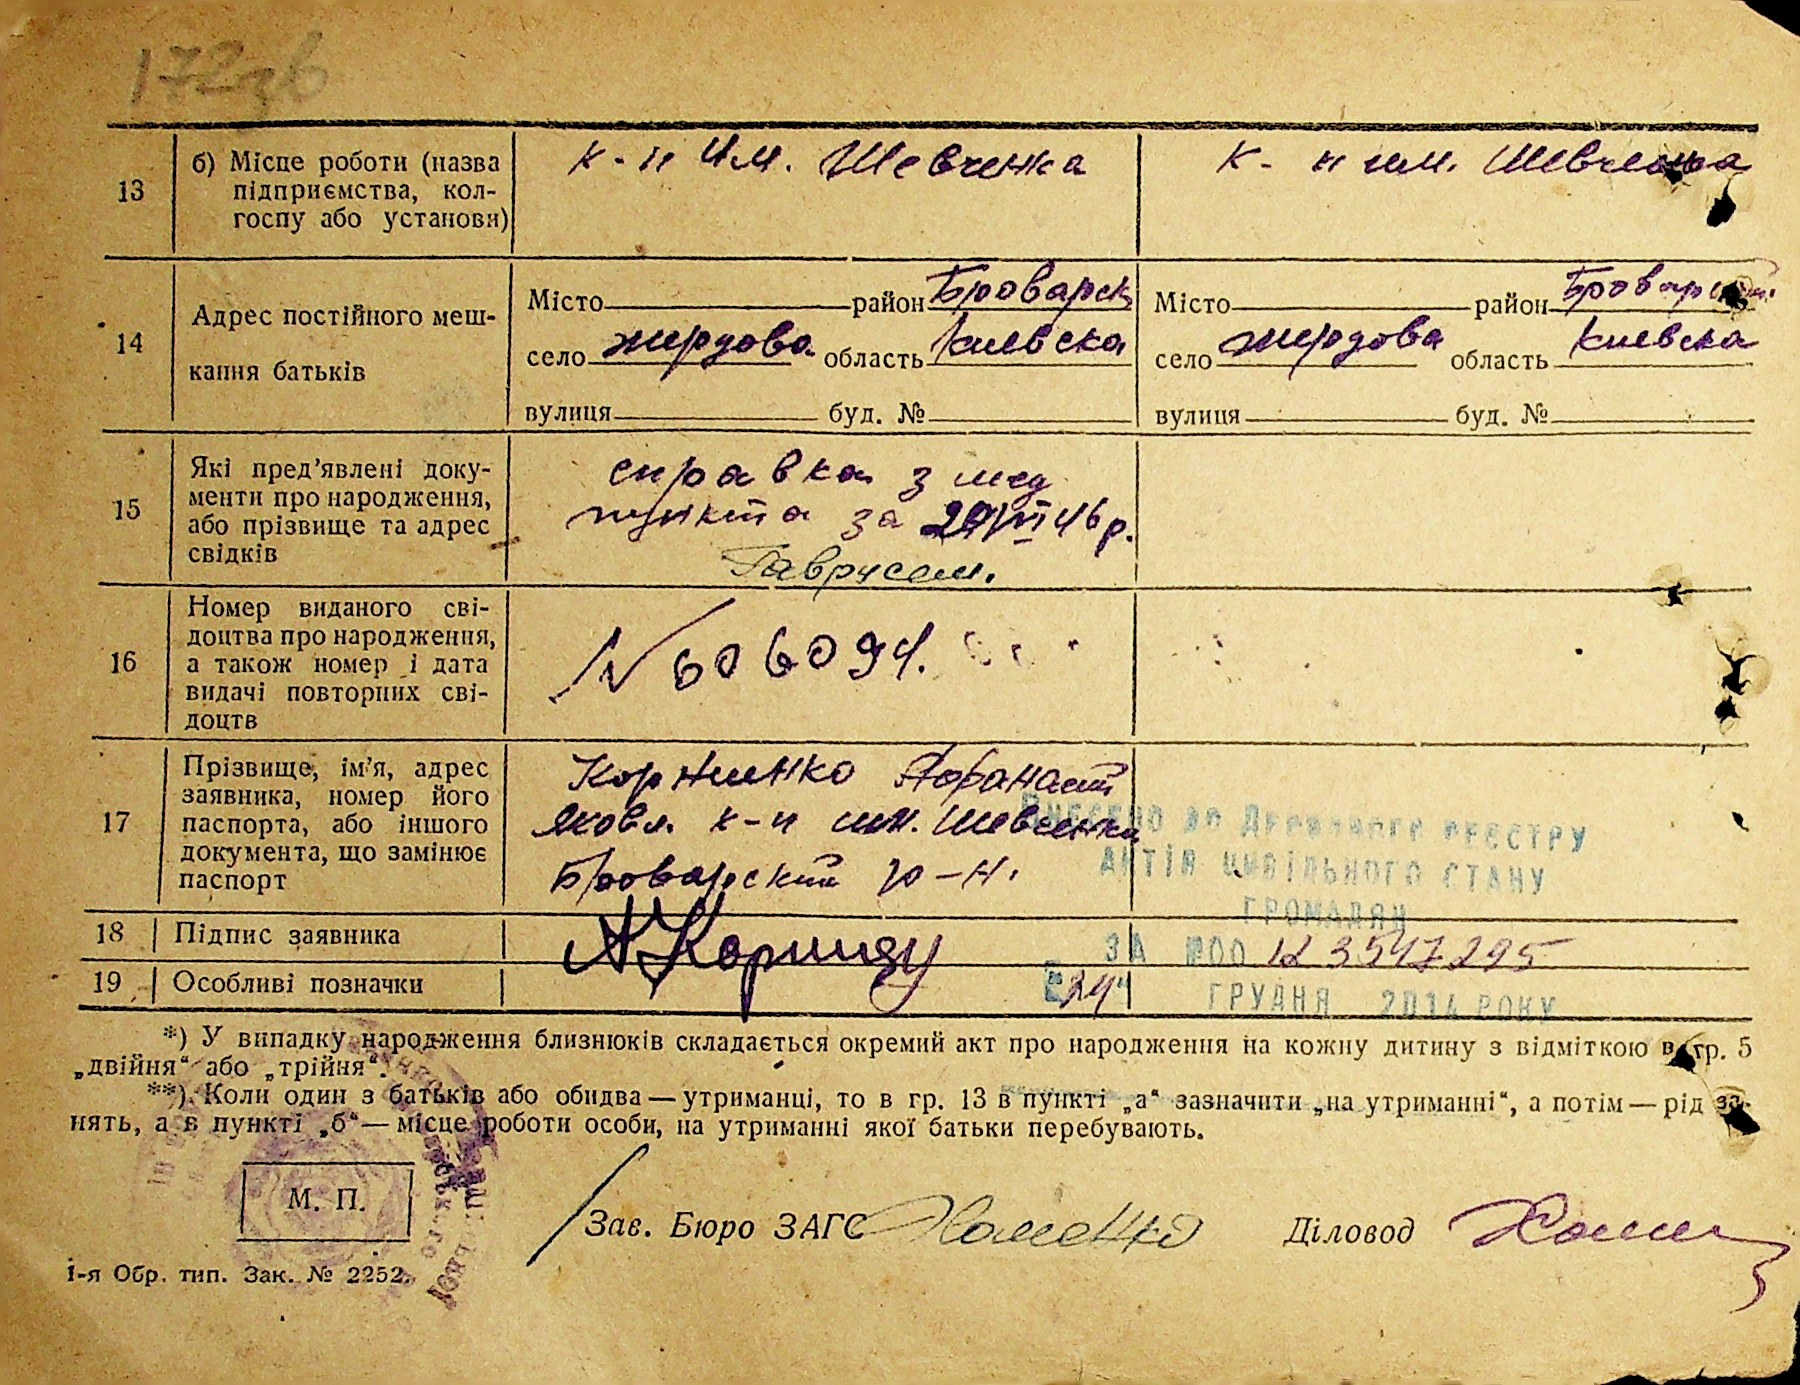 13
б) Місце роботи (назва
підприємства, кол-
госпу або установи)
к-п им. Шевченка
к-п им. Шевченка
14
Адрес постійного меш-
кання батьків
Місто район Броварск
село жердова область Киевска
вулиця буд. №
Місто район Броварск
село жердова область Киевска
вулиця буд. №
15
Які пред'явлені доку-
менти про народження,
або прізвище та адрес
свідків
справка з мед
пункта за 46 р.
16
Номер виданого сві-
доцтва про народження,
а також номер і дата
видачі повторних сві-
доцтв
N 606094.
17
Прізвище, ім'я, адрес
заявника, номер його
паспорта, або іншого
документа, що замінює
паспорт
Афанасий
Яковл. к-п им. Шевченка
Броварский р-н.
ВНЕСЕНО ДО ДЕРЖАВНОГО РЕЄСТРУ
АКТІВ ЦИВІЛЬНОГО СТАНУ
ГРОМАДЯН
18
Підпис заявника
ЗА №00 123547295
19
Особливі позначки
24 ГРУДНЯ 2014 РОКУ
*) У випадку народження близнюків складається окремий акт про народження на кожну дитину з відміткою в гр. 5
„двійня“ або „трійня“.
**) Коли один з батьків або обидва — утриманці, то в гр. 13 в пункті „а“ зазначити „на утриманні“, а потім — рід за-
нять, а в пункті „б“ — місце роботи особи, на утриманні якої батьки перебувають.
М. П.
Зав. Бюро ЗАГС
Діловод
1-я Обр. тип. Зак. № 2252.